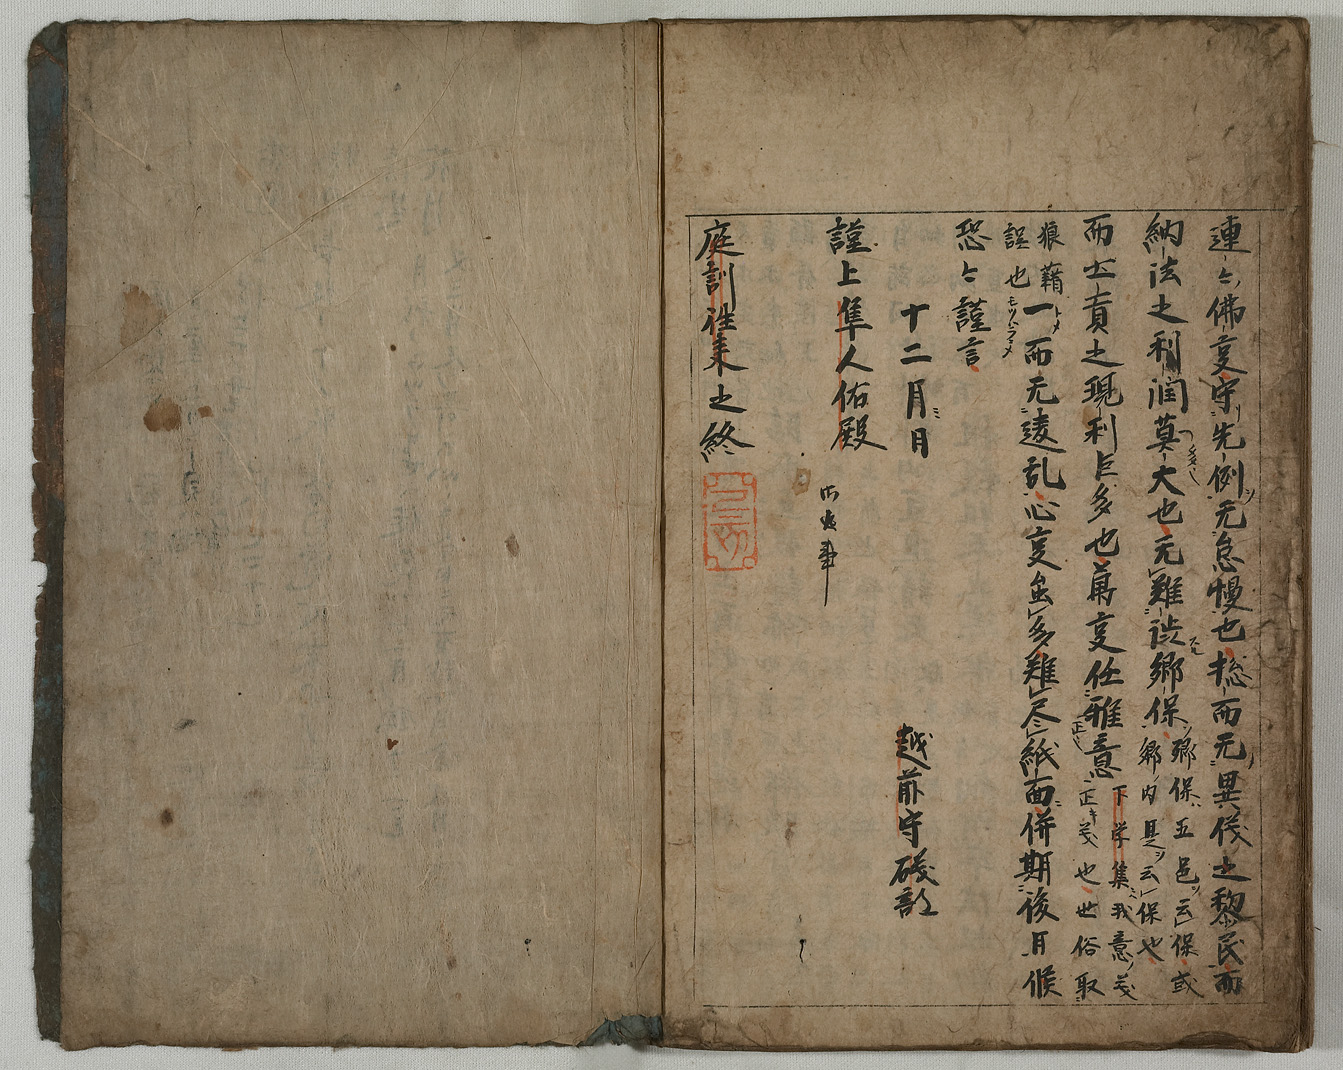 連々佛事守先例无怠慢也揔而无異儀之黎民而
納法之利潤莫大也元難渋郷保
郷保五邑ヲ云保或
郷ノ内里ヲ云保也
而土貢之現利巨多也萬事任雅意
下学集ニ我意ノ義
正キ義也世俗取
狼藉
誤也
一而无凌乱心事虽多難尽紙面併期後日候
恐々謹言
十二月日
越前守磯部
謹上隼人佑殿
庭訓往来之終